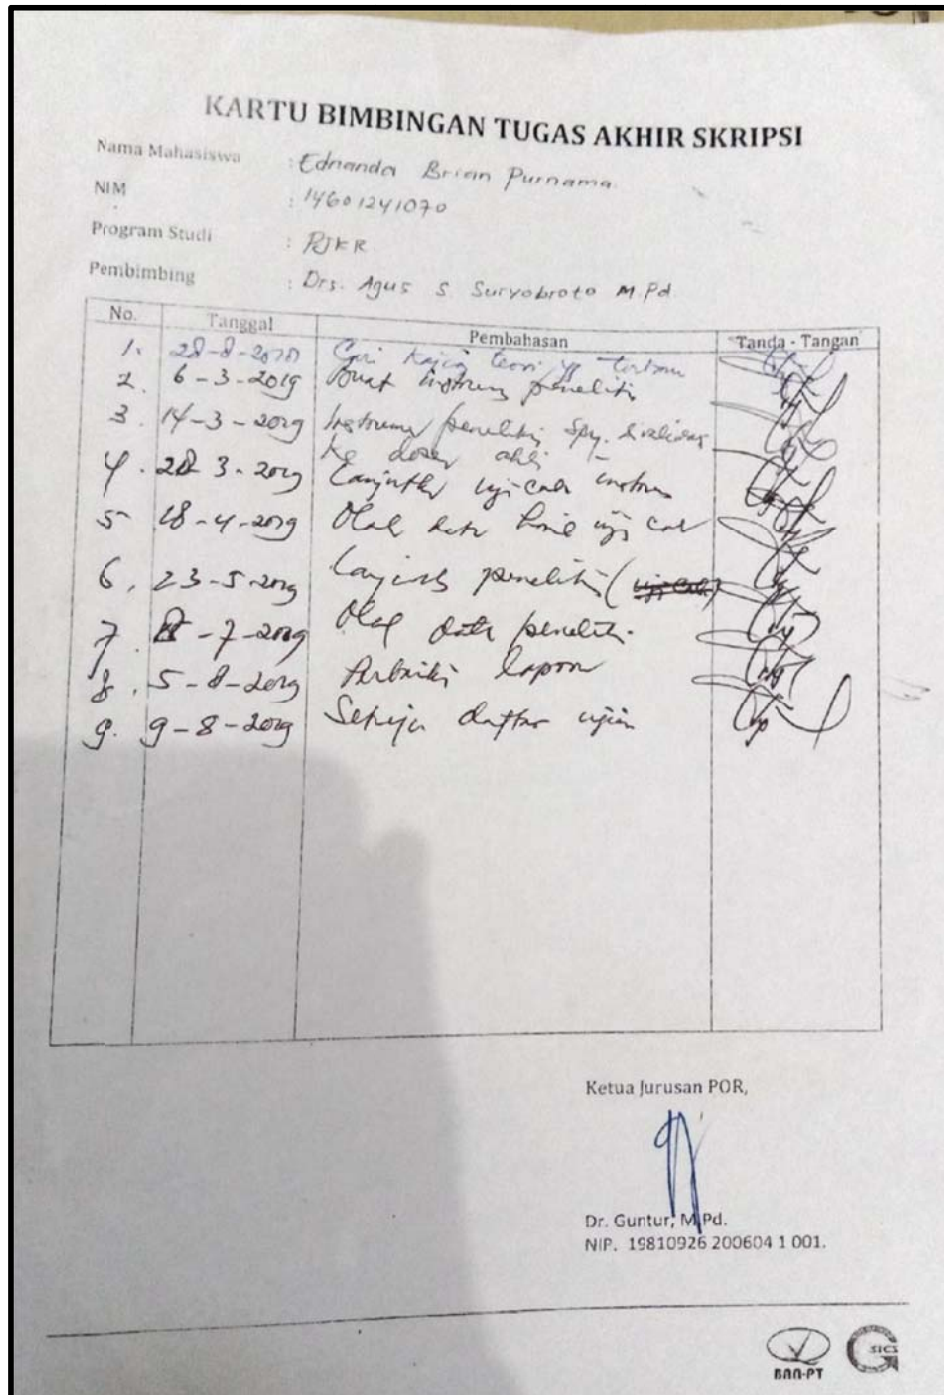 KARTU BIMBINGAN TUGAS AKHIR SKRIPSI
Nama Mahasiswa : Ednanda Brian Purnama
NIM : 14601241070
Program Studi : PJKR
Pembimbing : Drs. Agus S. Suryobroto M.Pd.
No. Tanggal Pembahasan Tanda - Tangan
1. Cari kajian teori yg
2. 6-3-2019 Buat instrumen peneliti
3. 14-3-2019 Instrumen peneliti spy.
ke dosen ahli
4. 28 3-2019 Lanjutkan uji coba instrumen
5 18-4-2019 Olah data hasil uji coba
6. 23-5-2019 peneliti (uji coba)
7. -7-2019 Olah data peneliti.
8. 5-8-2019 Perbaiki laporan
9. 9-8-2019 Setuju daftar ujian
Ketua Jurusan POR,
Dr. Guntur, M.Pd.
NIP. 19810926 200604 1 001.
BAN-PT